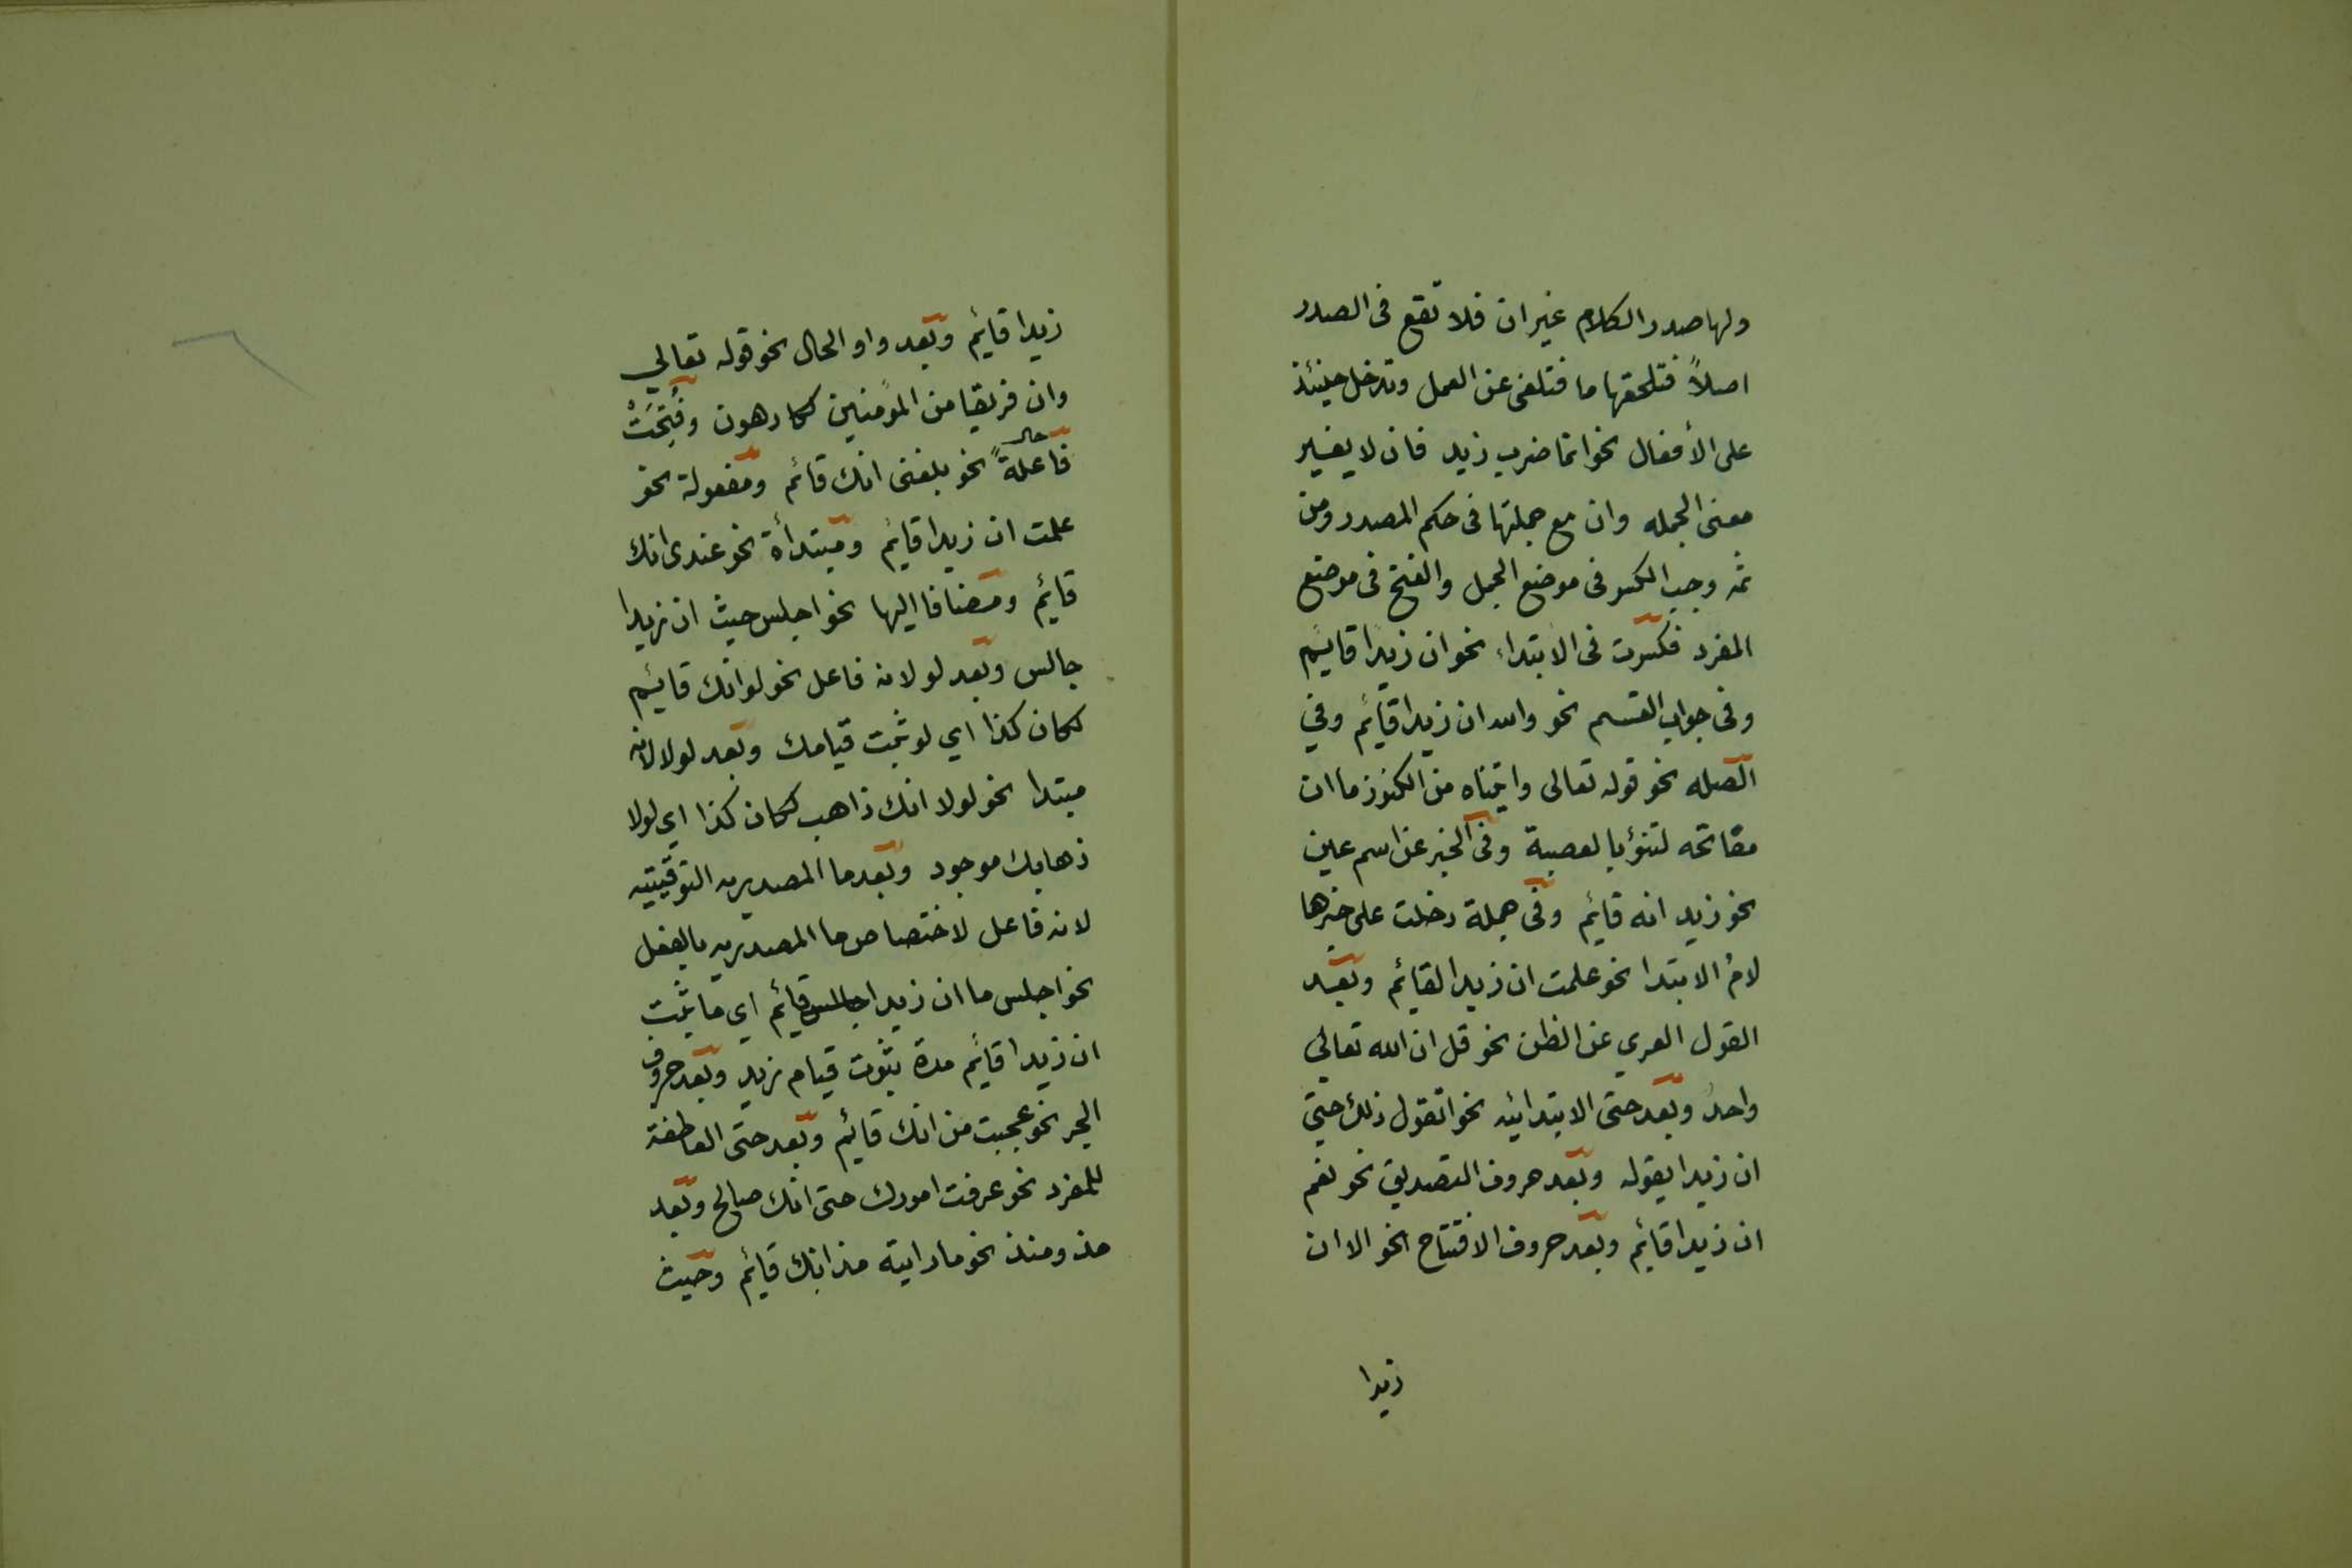 ولها صدر الكلام غير ان فلا تقع فى الصدر
اصلاً فتلحقها ما فتلغى عن العمل وتدخل حينئذ
على الأفعال نحو انما ضرب زيد فان لا يغير
معنى الجمله وان مع جملتها فى حكم المصدر ومن
ثمه وجب الكسر فى موضع الجمل والفتح فى موضع
المفرد فكسرت فى الابتداء نحو ان زيدا قايم
وفى جواب القسم نحو والله ان زيدا قائم وفي
الصله نحو قوله تعالى واتيناه من الكنوز ما ان
مفاتحه لتنؤ بالعصبة وفى الخبر عن اسم عين
نحو زيد انه قائم وفى جملة دخلت على خبرها
لامُ الابتدا نحو علمت ان زيدا لقائم وبعد
القول العري عن الظن نحو قل ان الله تعالي
واحدُ وبعد حتى الابتدائيه نحو اتقول ذلك حتي
ان زيدا يقوله وبعد حروف التصديق نحو نعم
ان زيدا قائم وبعد حروف الافتتاح نحو الا ان
زيدا
زيدا قائم وبعد واو الحال نحو قوله تعالي
وان فريقا من المؤمنين لكارهون وفُتِحَتْ
حال
فاعلةً نحو بلغنى انك قائم ومفعولة نحو
علمت ان زيدا قائم ومبتدأة نحو عندى انك
قائم ومضافا اليها نحو اجلس حيث ان زيدا
جالس وبعد لو لانه فاعل نحو لو انك قائم
لكان كذا اي لو ثبت قيامك وبعد لولا لانه
مبتدا نحو لولا انك ذاهب لكان كذا اي لولا
ذهابك موجود وبعد ما المصدريه التوقيتيه
لانه فاعل لاختصاص ما المصدريه بالفعل
نحو اجلس ما ان زيدا جالس قائم اي ما ثبت
ان زيدا قائم مدة ثبوت قيام زيد وبعد حروف
الجر نحو عجبت من انك قائم وبعد حتى العاطفة
للمفرد نحو عرفت امورك حتى انك صالح وبعد
مذ ومنذ نحو ما رايته مذ انك قائم وحيث